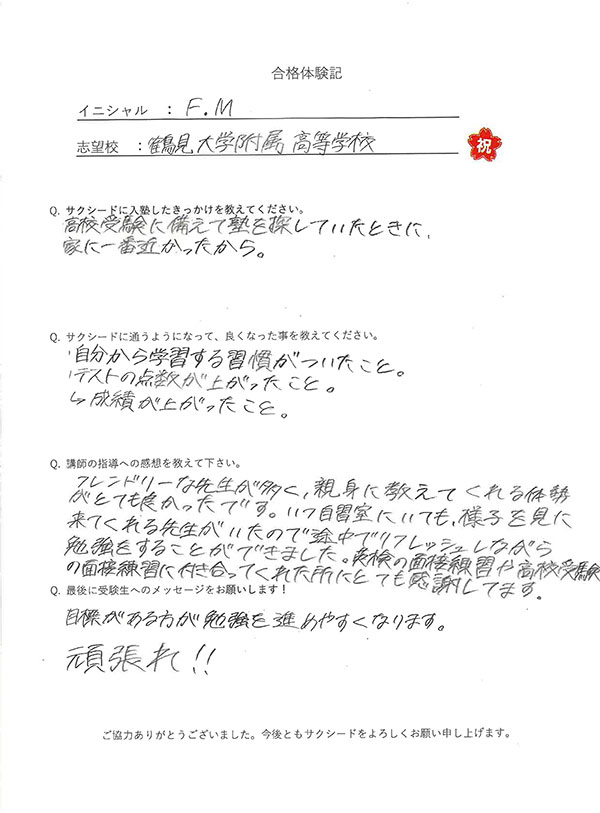 合格体験記
イニシャル ： F.M
志望校 ：鶴見大学附属高等学校
祝
Q. サクシードに入塾したきっかけを教えてください。
高校受験に備えて塾を探していたときに、
家に一番近かったから。
Q. サクシードに通うようになって、良くなった事を教えてください。
・自分から学習する習慣がついたこと。
・テストの点数が上がったこと。
↳成績が上がったこと。
Q. 講師の指導への感想を教えて下さい。
フレンドリーな先生が多く、親身に教えてくれる体勢
がとても良かったです。いつ自習室にいても、様子を見に
来てくれる先生がいたので途中でリフレッシュしながら
勉強をすることができました。英検の面接練習や高校受験
の面接練習に付き合ってくれた所にとても感謝してます。
Q. 最後に受験生へのメッセージをお願いします！
目標がある方が勉強を進めやすくなります。
頑張れ!!
ご協力ありがとうございました。今後ともサクシードをよろしくお願い申し上げます。